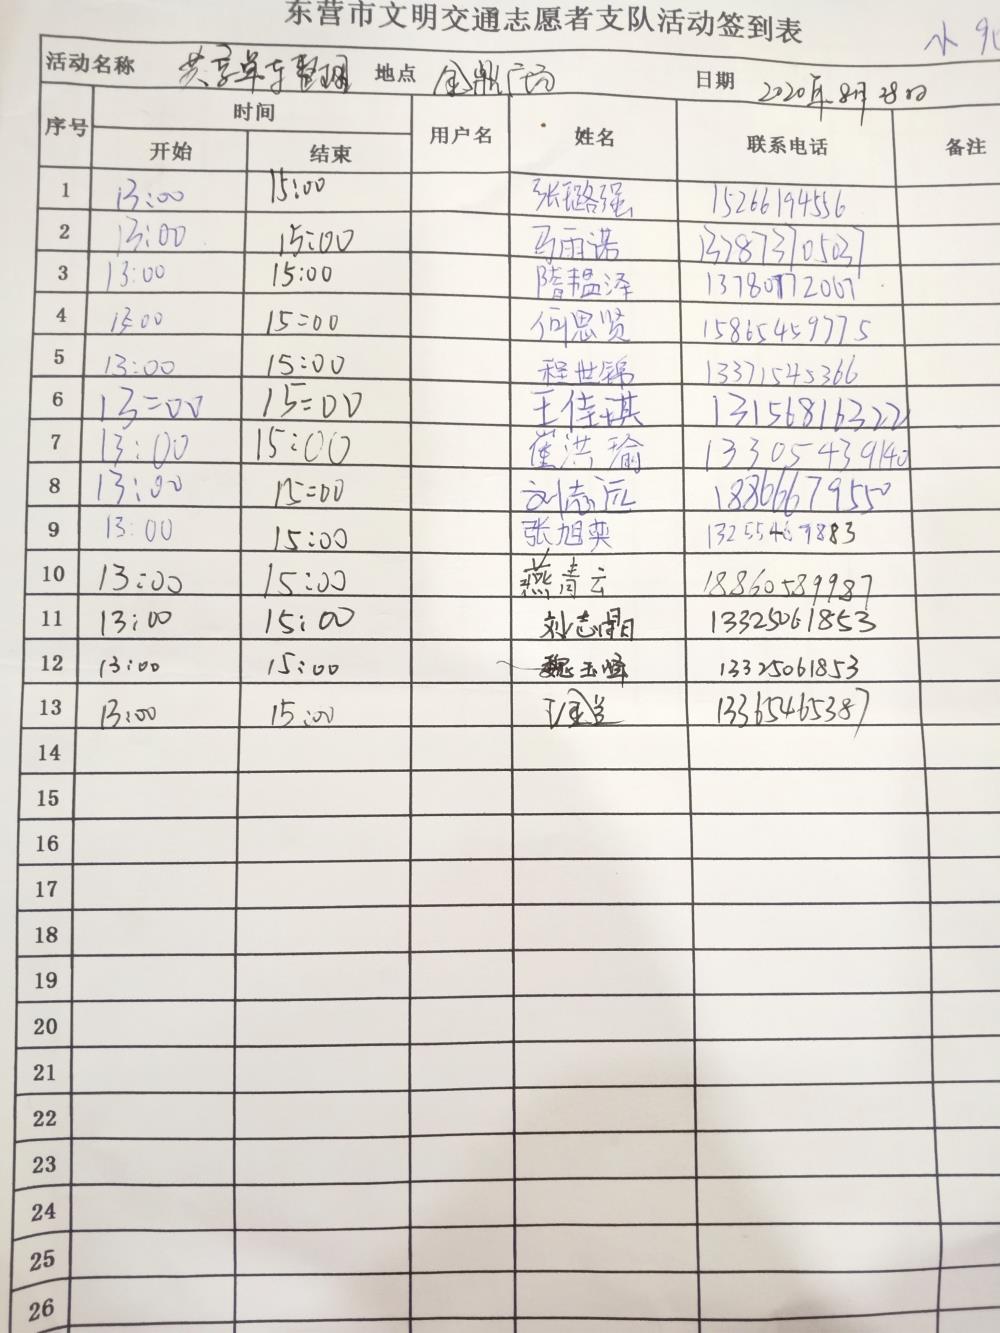 东营市文明交通志愿者支队活动签到表
活动名称 共享单车整理 地点 金鼎广场 日期 2020年8月28日
序号 时间 用户名 姓名 联系电话 备注
开始 结束
1 13:00 15:00 张璐强 15266194556
2 13:00 15:00 马雨诺 137873705037
3 13:00 15:00 隋韫泽 13780772067
4 13:00 15:00 何思贤 15865459775
5 13:00 15:00 程世锦 13371545366
6 13:00 15:00 王佳琪 13156816322
7 13:00 15:00 崔洪瑜 13305439140
8 13:00 15:00 刘志远 18866679550
9 13:00 15:00 张旭奕 13255469883
10 13:00 15:00 燕青云 18860589987
11 13:00 15:00 刘志 13325061853
12 13:00 15:00 魏玉 13325061853
13 13:00 15:00 13365465387
14
15
16
17
18
19
20
21
22
23
24
25
26